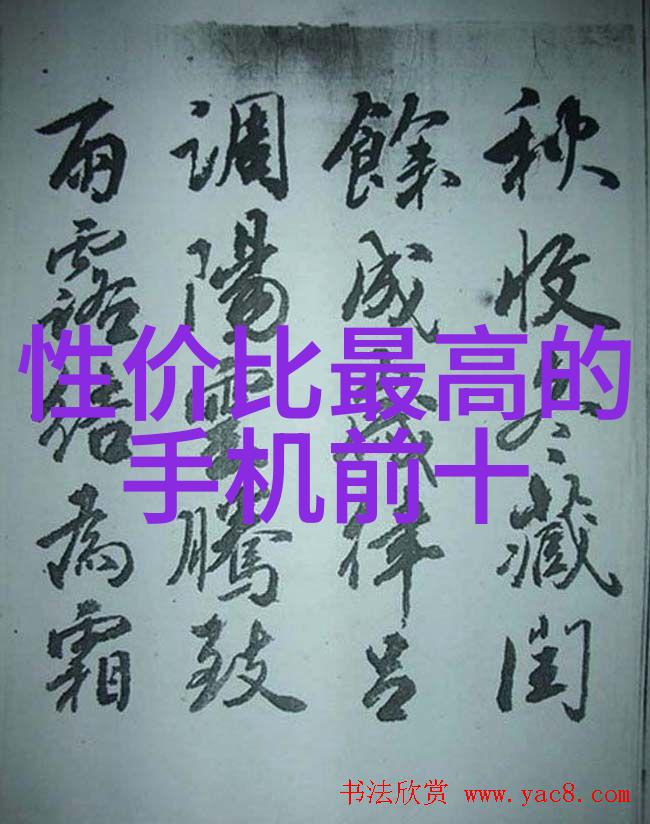 秋收冬藏閏
餘成歲律呂
調陽雲騰致
雨露結為霜
性价比最高的
手机前十
书法欣赏 www.yac8.com